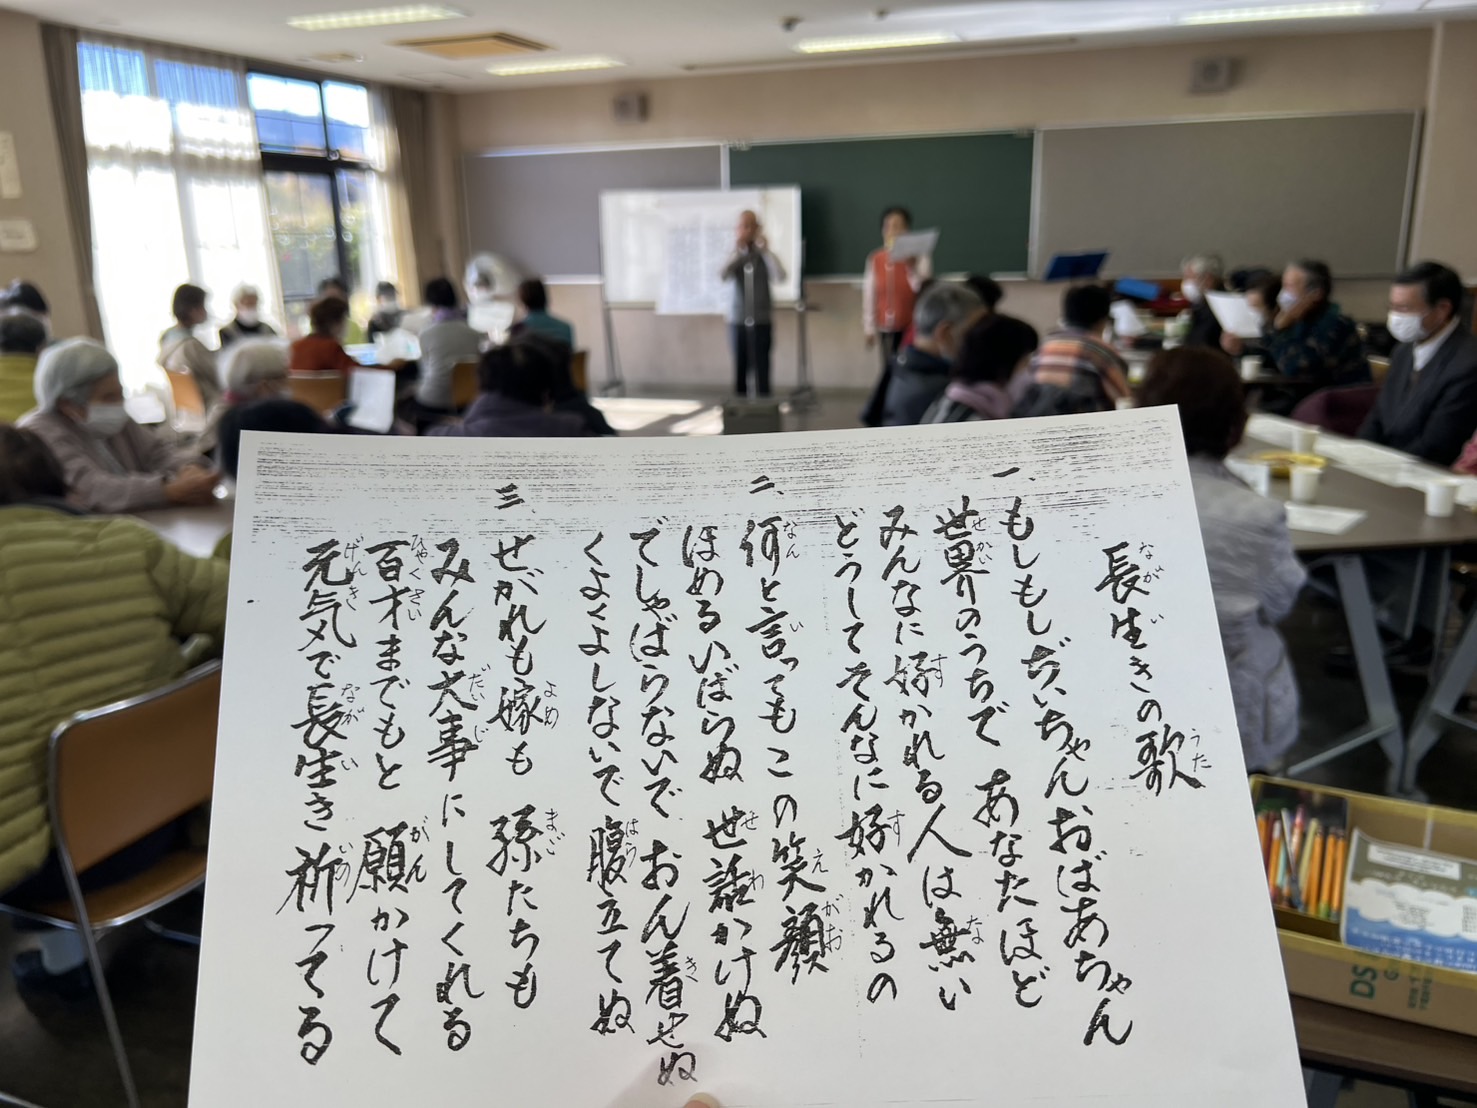 長生きの歌
一、もしもしぢいちゃんおばあちゃん
世界のうちで あなたほど
みんなに好かれる人は無い
どうしてそんなに好かれるの
二、何と言ってもこの笑顔
ほめるいばらぬ 世話かけぬ
でしゃばらないで おん着せぬ
くよくよしないで腹立てぬ
三、せがれも嫁も 孫たちも
みんな大事にしてくれる
百才までもと 願かけて
元気で長生き祈ってる
DS